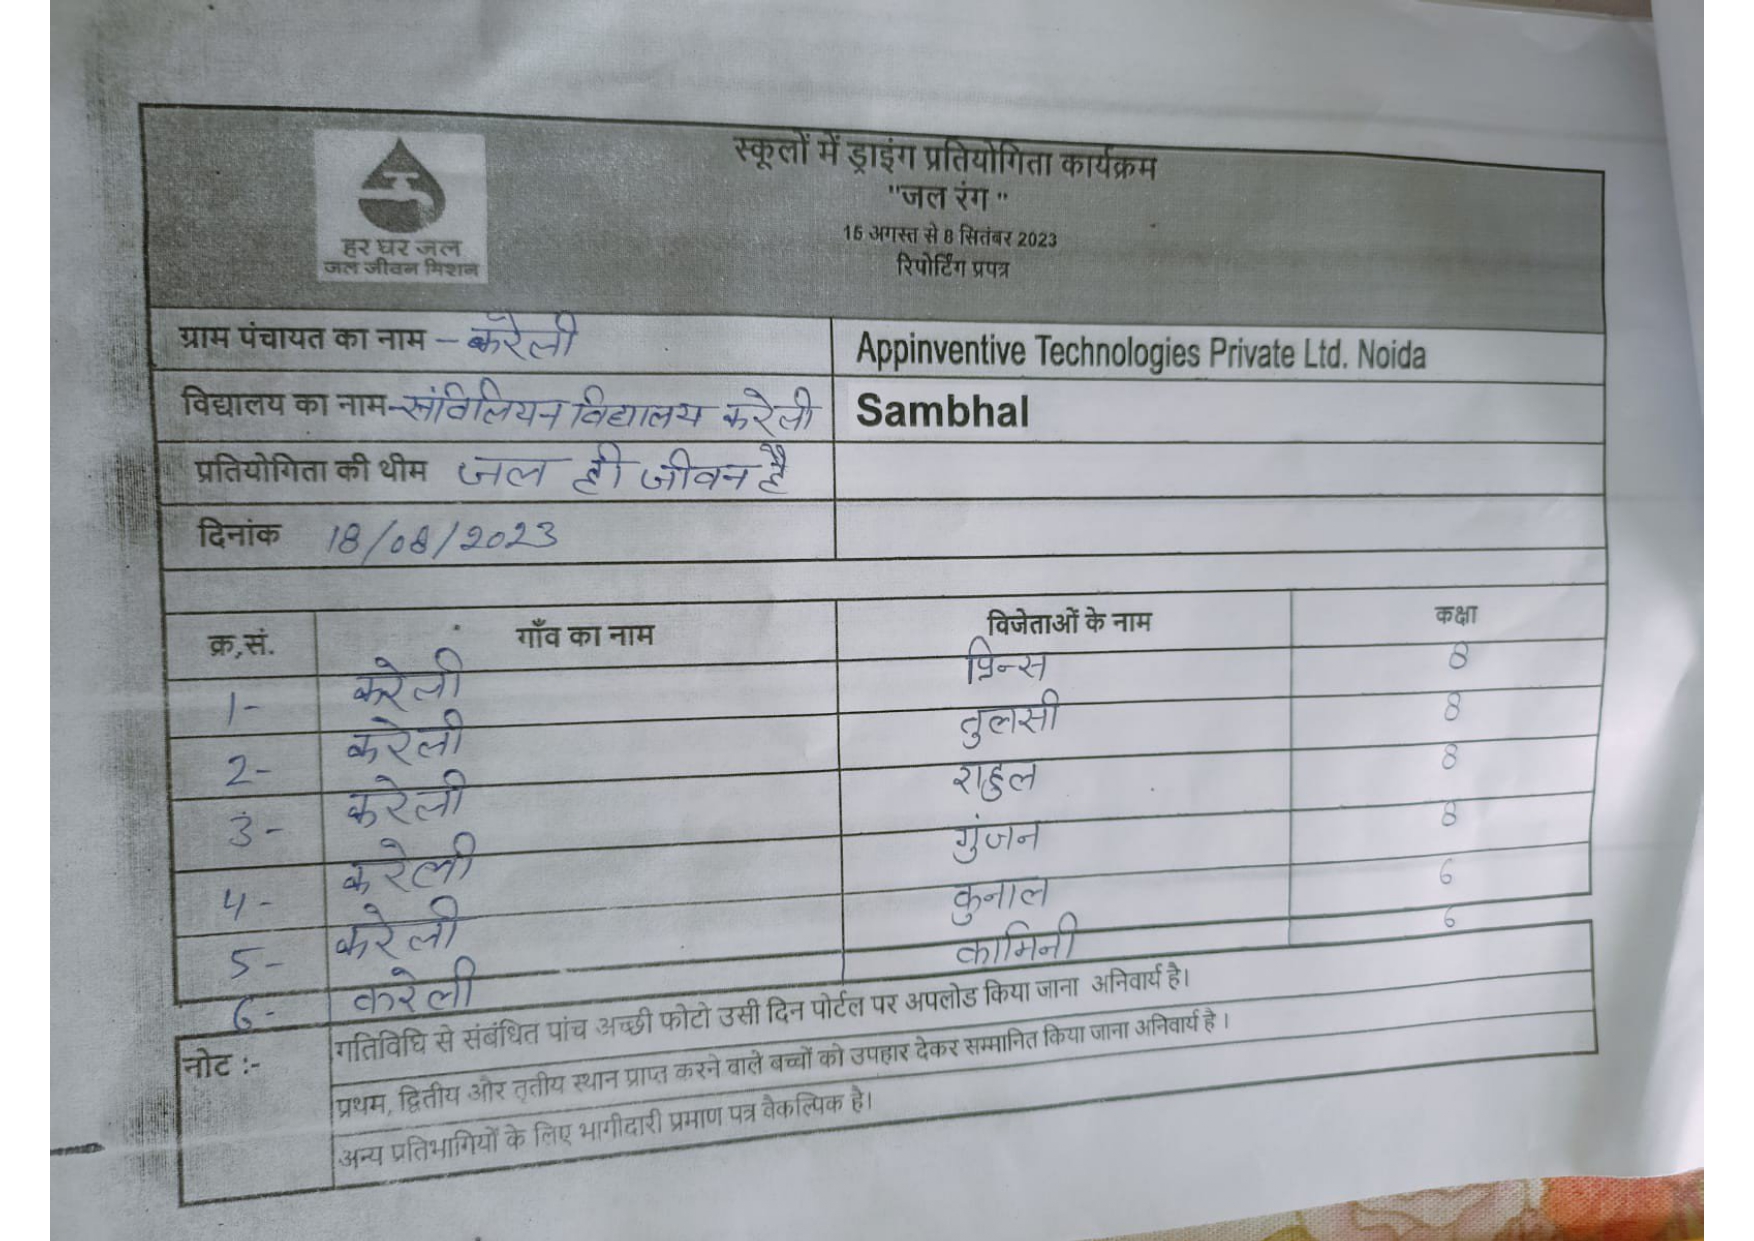 हर घर जल
जल जीवन मिशन
स्कूलों में ड्राइंग प्रतियोगिता कार्यक्रम
"जल रंग "
15 अगस्त से 8 सितंबर 2023
रिपोर्टिंग प्रपत्र
ग्राम पंचायत का नाम – करेली Appinventive Technologies Private Ltd. Noida
विद्यालय का नाम-संविलियन विद्यालय करेली Sambhal
प्रतियोगिता की थीम जल ही जीवन है
दिनांक 18/08/2023
क्र,सं. गाँव का नाम विजेताओं के नाम कक्षा
1- करेली प्रिन्स 8
2- करेली तुलसी 8
3- करेली राहुल 8
4- करेली गुंजन 8
5- करेली कुनाल 6
6- करेली कामिनी 6
नोट :- गतिविधि से संबंधित पांच अच्छी फोटो उसी दिन पोर्टल पर अपलोड किया जाना अनिवार्य है।
प्रथम, द्वितीय और तृतीय स्थान प्राप्त करने वाले बच्चों को उपहार देकर सम्मानित किया जाना अनिवार्य है ।
अन्य प्रतिभागियों के लिए भागीदारी प्रमाण पत्र वैकल्पिक है।